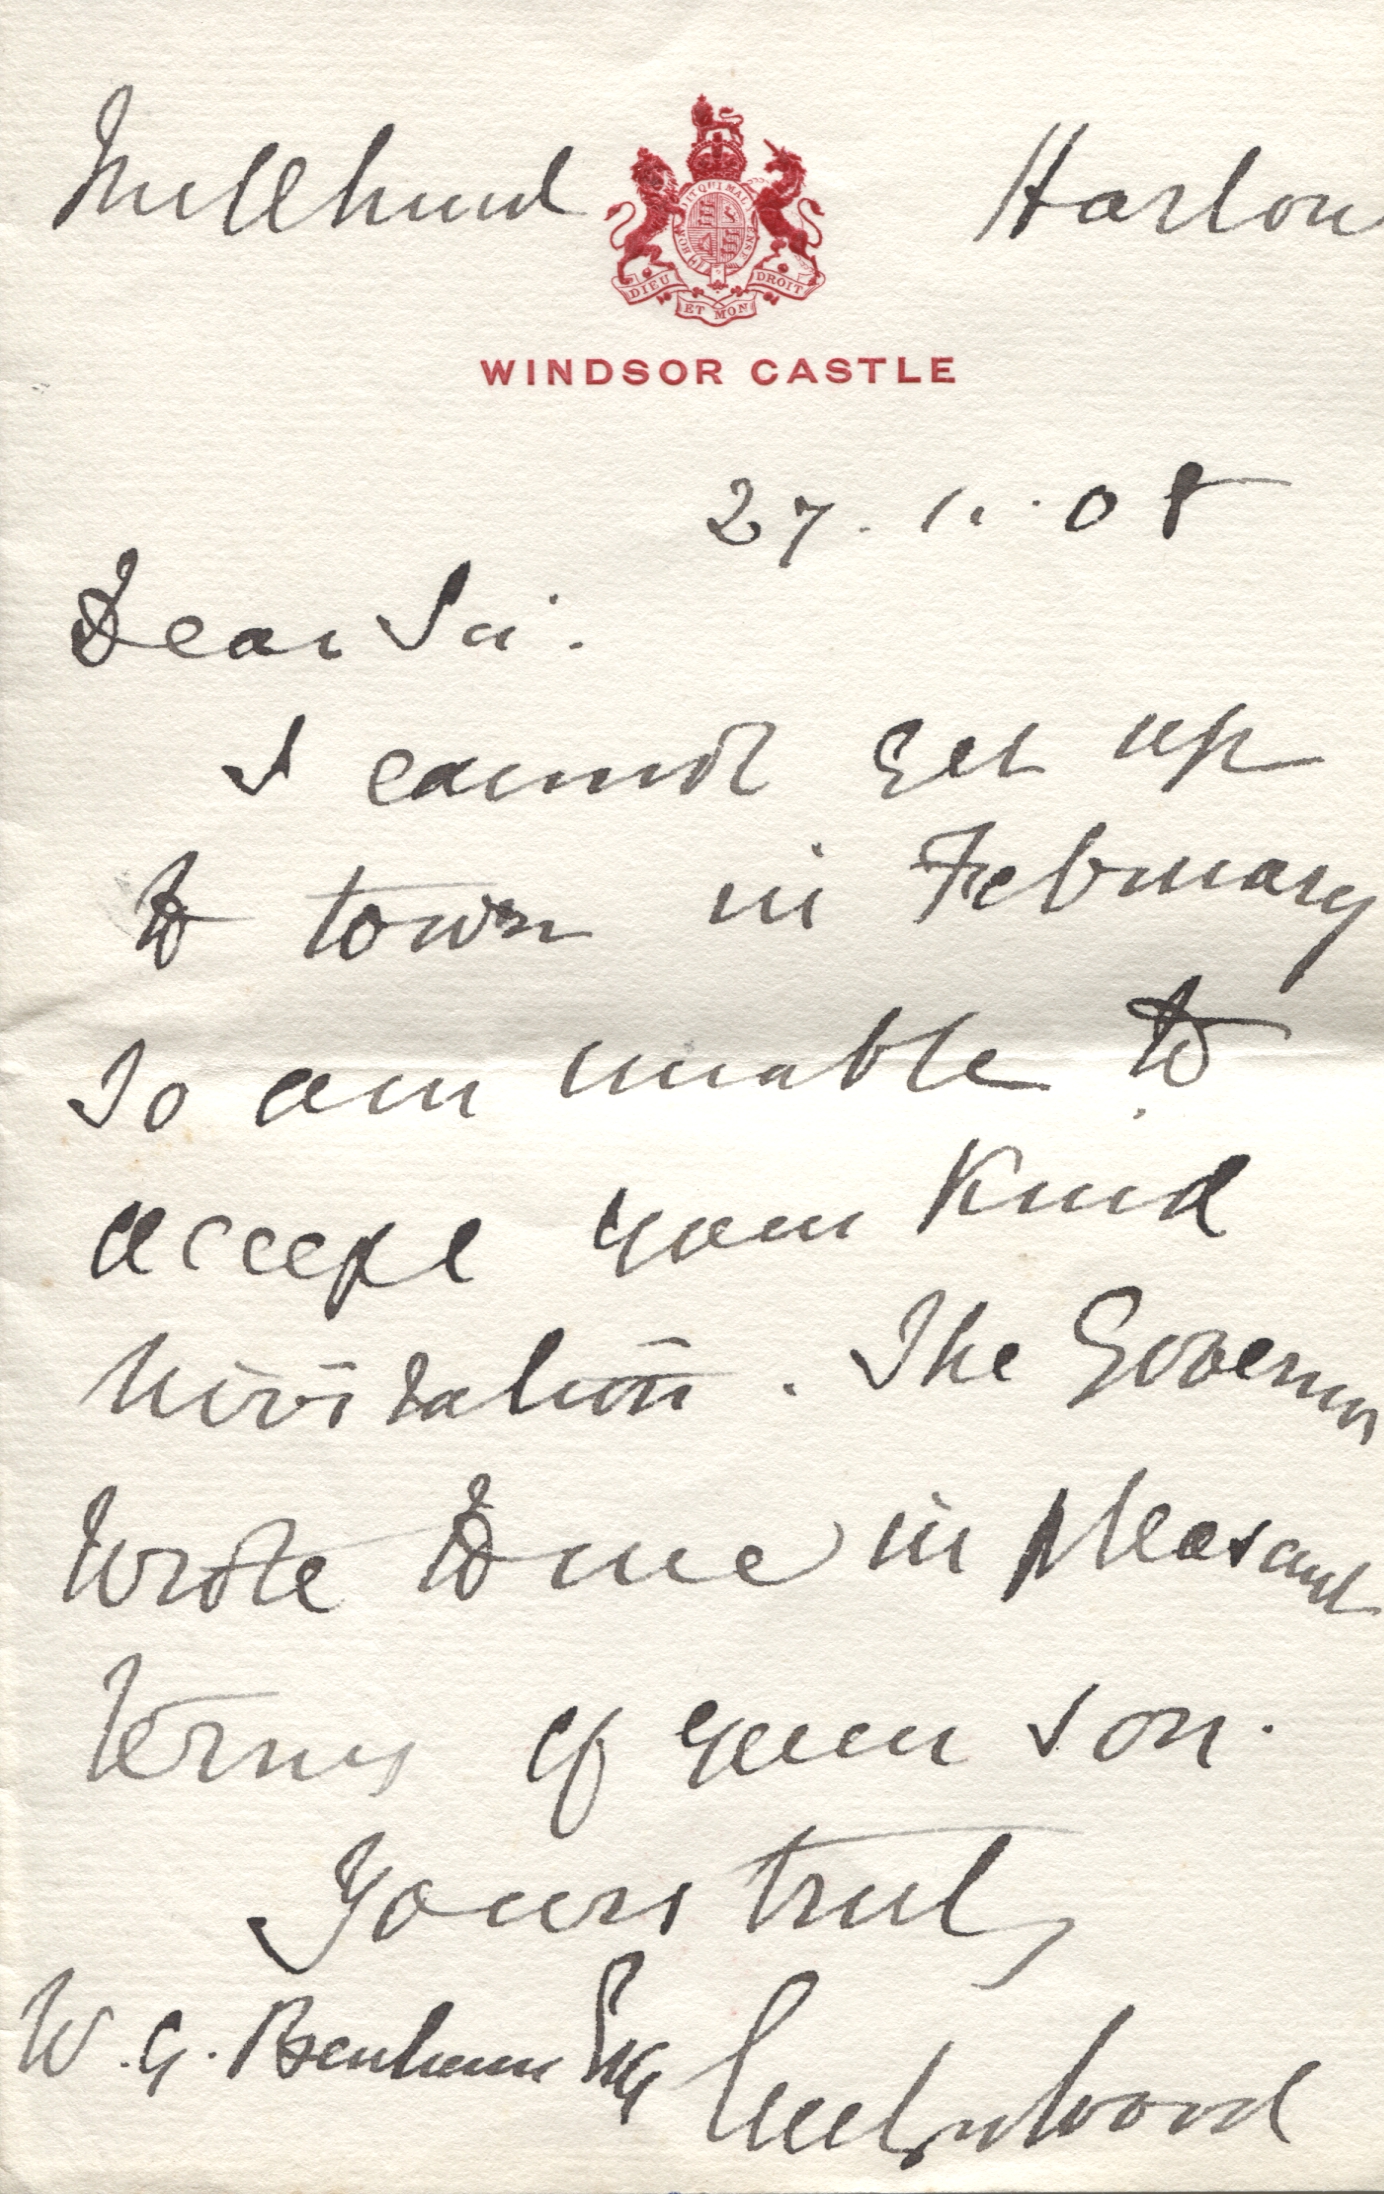 Millhurst Harlow
DIEU ET MON DROIT
WINDSOR CASTLE
27. 11. 08
Dear Sir.
I cannot get up
to town in February
so am unable to
accept your kind
invitation. The Governor
wrote to me in pleasant
terms of your son.
Yours truly
W. G. Benham Esq Evelyn Wood